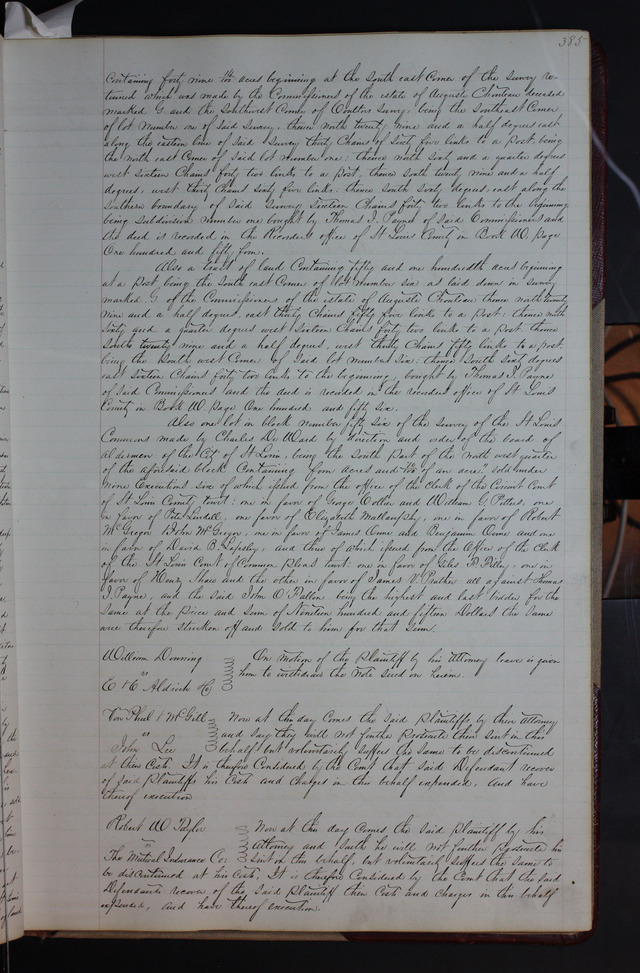 385
Containing forty nine acres beginning at the South east Corner of the Survey re-
turned which was made by the Commissioners of the estate of Auguste Chouteau deceased
marked G. and the Southwest Corner of Coulters Survey: being the Southeast Corner
of lot Number one of Said Survey, thence North twenty nine and a half degrees east
along the eastern line of Said Survey thirty Chains of Sixty five links to a Post, being
the north east Corner of Said lot number one: thence north Sixty and a quarter degrees
west Sixteen Chains forty two links to a Post, thence South twenty nine and a half
degrees, west thirty Chains Sixty five links: thence South Sixty degrees, east along the
Southern boundary of Said Survey Sixteen Chains forty two links to the beginning
being Subdivision Number one bought by Thomas J. Payne of Said Commissioners and
the deed is recorded in the Recorders office of St Louis County in Book W. page
One hundred and fifty four.
Also a tract of land Containing fifty and one hundredth acres beginning
at a Post being the South east Corner of lot Number Six as laid down in Survey
marked G of the Commissioners of the estate of Auguste Chouteau thence north twenty
nine and a half degrees, east thirty Chains fifty five links to a Post: thence north
Sixty and a quarter degrees west Sixteen Chains forty two links to a Post thence
South twenty nine and a half degrees, west thirty Chains fifty links to a post
being the South west Corner of Said lot number Six: thence South Sixty degrees
east Sixteen Chains forty two links to the beginning, bought by Thomas J. Payne
of Said Commissioners and the deed is recorded in the recorders office of St Louis
County in Book W. page One hundred and fifty Six.
Also one lot in block Number fifty Six of the Survey of the St Louis
Commons made by Charles De Ward by direction and order of the board of
Aldermen of the City of St Louis, being the South Part of the North west quarter
of the aforesaid block Containing four acres and of an acre," Sold under
nine Executions Six of which issued from the office of the Clerk of the Circuit Court
of St Louis County, towit: one in favor of George Collier and William G. Pettus, one
in favor of Peter Lindell, one favor of Elizabeth one in favor of Robert
McGregor & John McGregor, one in favor of James and Benjamin and one
in favor of David B. and three of which issued from the Office of the Clerk
of the St Louis Court of Common Pleas towit: one in favor of Giles F. Filley, one in
favor of Henry Shaw and the other in favor of James V. Prather all against Thomas
J. Payne, and the Said John O'Fallon being the highest and last bidder for the
Same at the Price and Sum of Nineteen hundred and fifteen Dollars the Same
were therefore Stricken off and Sold to him for that Sum.
William Downing
vs
E & E Aldrich & Co
On motion of the Plaintiff by his Attorney leave is given
him to withdraw the Note Sued on herein.
Von Phul & McGill
vs
John Lee
Now at this day Comes the Said Plaintiffs, by their Attorney
and Say they will not further Prosecute their Suit in this
behalf but voluntarily Suffers the Same to be discontinued
at their Costs. It is therefore Considered by the Court that Said Defendant recover
of Said Plaintiffs his Costs and Charges in this behalf expended, and have
thereof execution
Robert W Taylor
vs
The Mutual Insurance Co:
Now at this day comes the Said Plaintiff by his
Attorney and Saith he will not further Prosecute his
Suit in this behalf, but voluntarily Suffers the Same to
be discontinued at his Costs; It is therefore Considered by the Court that the Said
Defendants recover of the Said Plaintiff their Costs and Charges in this behalf
expended, and have thereof execution.